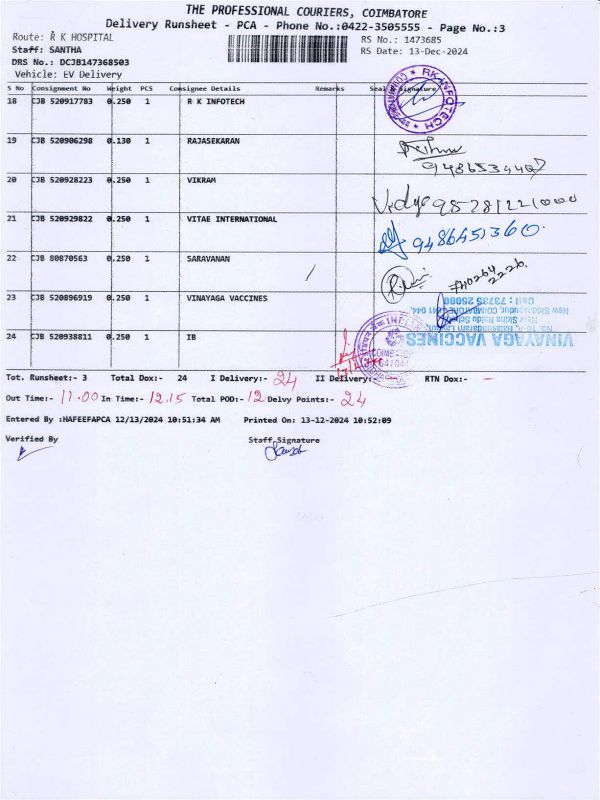 THE PROFESSIONAL COURIERS, COIMBATORE
Delivery Runsheet - PCA - Phone No.:0422-3505555 - Page No.:3
Route: R K HOSPITAL
RS No.: 1473685
Staff: SANTHA
RS Date: 13-Dec-2024
DRS No.: DCJB147368503
Vehicle: EV Delivery
S No Consignment No Weight PCS Consignee Details Remarks Seal Signature
18 CJB 520917783 0.250 1 R K INFOTECH
RK INFOTECH
19 CJB 520906298 0.130 1 RAJASEKARAN
20 CJB 520928223 0.250 1 VIKRAM
21 CJB 520929822 0.250 1 VITAE INTERNATIONAL
9486451360.
22 CJB 80870563 0.250 1 SARAVANAN
740264
2226.
23 CJB 520896919 0.250 1 VINAYAGA VACCINES
VINAYAGA VACCINES
New Siddhapudur, COIMBATORE-641 044.
Cell : 73735 25000
24 CJB 520938811 0.250 1 IB
Tot. Runsheet:- 3 Total Dox:- 24 I Delivery:- 24 II Delivery:- - RTN Dox:- -
Out Time:- 11.00 In Time:- 12.15 Total POD:- 12 Delvy Points:- 24
Entered By :HAFEEFAPCA 12/13/2024 10:51:34 AM Printed On: 13-12-2024 10:52:09
Verified By Staff Signature